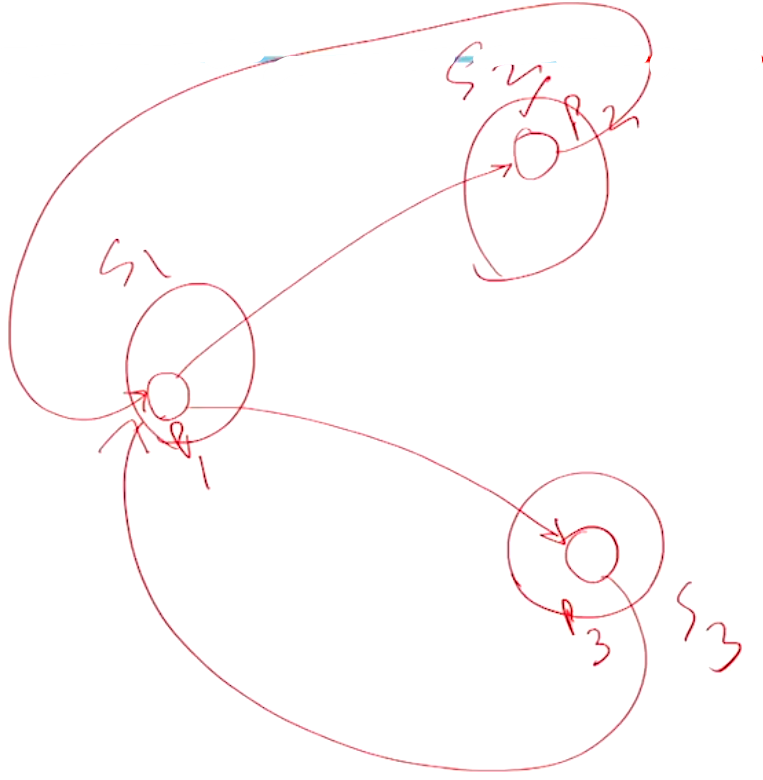 S2
P2
S1
P1
P3
S3